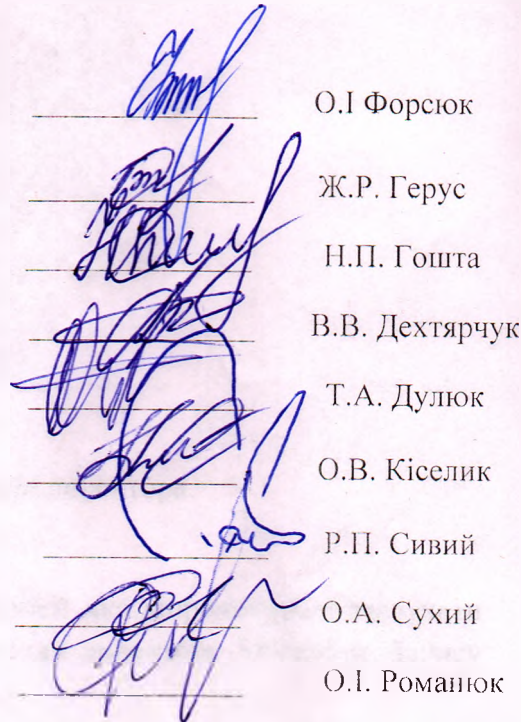 О.І Форсюк
Ж.Р. Герус
Н.П. Гошта
В.В. Дехтярчук
Т.А. Дулюк
О.В. Кіселик
Р.П. Сивий
О.А. Сухий
О.І. Романюк